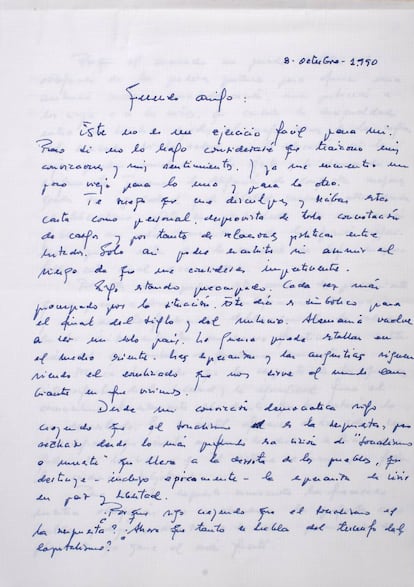 8-octubre-1990
Querido amigo:
Este no es un ejercicio fácil para mí.
Pero si no lo hago consideraré que traiciono mis
convicciones y mis sentimientos. Y ya me encuentro un
poco viejo para lo uno y para lo otro.
Te ruego que me disculpes y recibas esta
carta como personal, desprovista de toda connotación
de cargos y por tanto de relaciones políticas entre
nosotros. Solo así puedo escribirte sin asumir el
riesgo de que me consideres impertinente.
Sigo estando preocupado. Cada vez más
preocupado por la situación. Este día es simbólico para
el final del siglo y del milenio. Alemania vuelve
a ser un solo país. La guerra puede estallar en
el medio oriente. Las esperanzas y las angustias siguen
siendo el que nos sirve el mundo cam
biante en que vivimos.
Desde mi convicción democrática sigo
creyendo que el socialismo es la respuesta, pero
rechazo desde lo más profundo esa visión de "socialismo
o muerte" que lleva a la derrota de los pueblos, que
destruye - incluso épicamente - la esperanza de vivir
en paz y libertad.
¿Porque sigo creyendo que el socialismo es
la respuesta? ¿Ahora que tanto se habla del triunfo del
capitalismo?